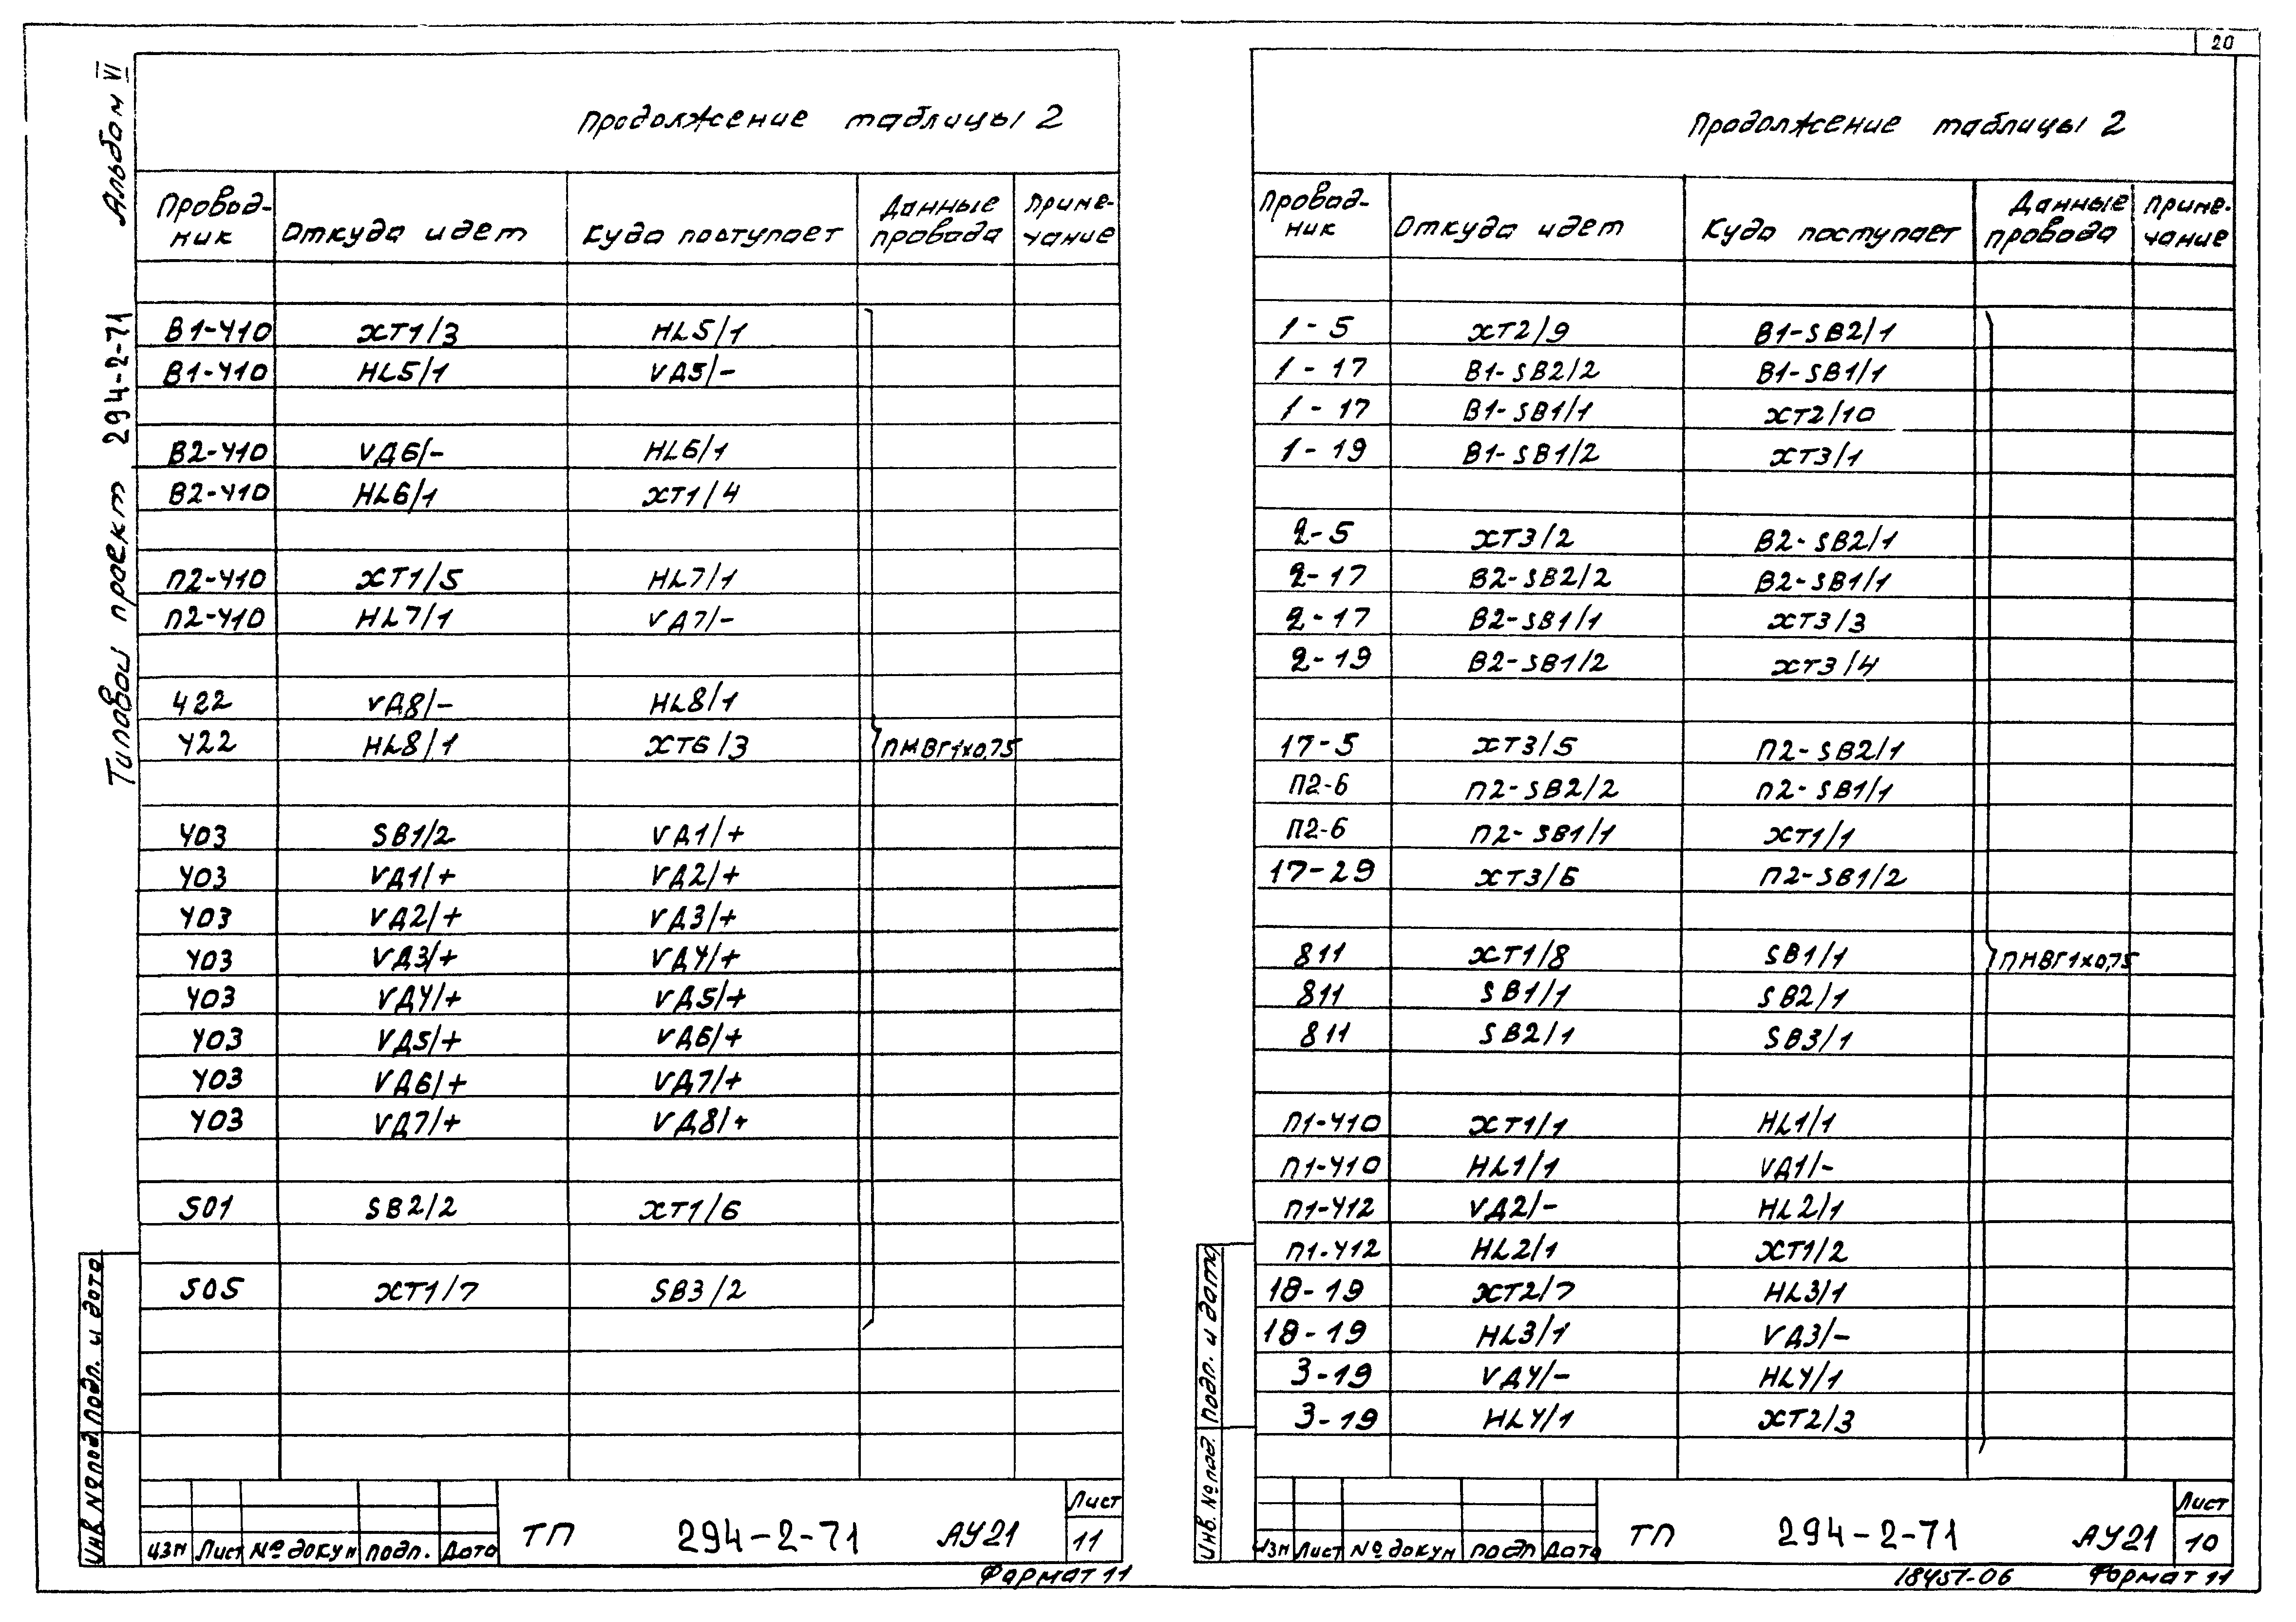 20
Альбом VI
Типовой проект 294-2-71
Продолжение таблицы 2
Провод-ник Откуда идет Куда поступает Данные провода Приме-чание
В1-410 ХТ1/3 HL5/1
В1-410 HL5/1 VД5/-
В2-410 VД6/- HL6/1
В2-410 HL6/1 ХТ1/4
П2-410 ХТ1/5 HL7/1
П2-410 HL7/1 VД7/-
422 VД8/- HL8/1
422 HL8/1 ХТ6/3 ПМВГ1х0,75
403 SB1/2 VД1/+
403 VД1/+ VД2/+
403 VД2/+ VД3/+
403 VД3/+ VД4/+
403 VД4/+ VД5/+
403 VД5/+ VД6/+
403 VД6/+ VД7/+
403 VД7/+ VД8/+
501 SB2/2 ХТ1/6
505 ХТ1/7 SB3/2
Инв. № под. Подп. и дата
изм Лист № докум подп. Дата
ТП 294-2-71 АУ21
Лист
11
Формат 11
Продолжение таблицы 2
Провод-ник Откуда идет Куда поступает Данные провода Приме-чание
1-5 ХТ2/9 В1-SB2/1
1-17 В1-SB2/2 В1-SB1/1
1-17 В1-SB1/1 ХТ2/10
1-19 В1-SB1/2 ХТ3/1
2-5 ХТ3/2 В2-SB2/1
2-17 В2-SB2/2 В2-SB1/1
2-17 В2-SB1/1 ХТ3/3
2-19 В2-SB1/2 ХТ3/4
17-5 ХТ3/5 П2-SB2/1
П2-6 П2-SB2/2 П2-SB1/1
П2-6 П2-SB1/1 ХТ1/1
17-29 ХТ3/6 П2-SB1/2
811 ХТ1/8 SB1/1 ПМВГ1х0,75
811 SB1/1 SB2/1
811 SB2/1 SB3/1
П1-410 ХТ1/1 HL1/1
П1-410 HL1/1 VД1/-
П1-412 VД2/- HL2/1
П1-412 HL2/1 ХТ1/2
18-19 ХТ2/7 HL3/1
18-19 HL3/1 VД3/-
3-19 VД4/- HL4/1
3-19 HL4/1 ХТ2/3
Инв. № под. Подп. и дата
изм Лист № докум подп Дата
ТП 294-2-71 АУ21
Лист
10
18457-06 Формат 11